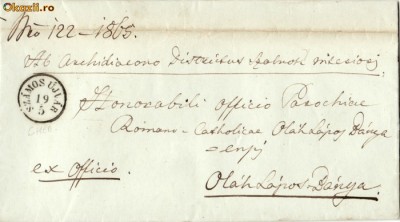 Okazii.ro
Nro 122 – 1865.
Ab Archidiacono Districtus Szolnok
SZAMOS UJLÁR
19
5
Honorabili Officio Parochiae
Romano-Catholicae Oláh Lápos Bánya
ex Officio.
Oláh Lápos-Bánya.